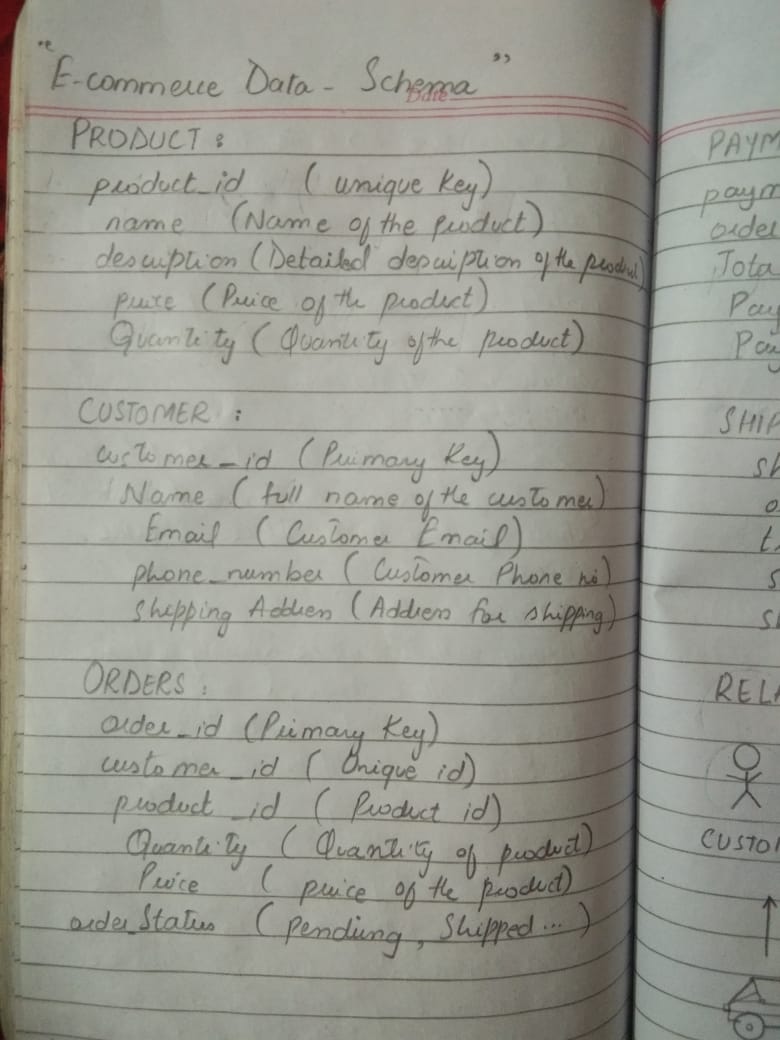 "E-commerce Data - Schema"
Date
PRODUCT :
product_id ( unique key)
name (Name of the product)
description (Detailed description of the product)
price (Price of the product)
Quantity ( Quantity of the product)
CUSTOMER :
customer_id (Primary Key)
Name ( full name of the customer)
Email ( Customer Email)
phone_number ( Customer Phone no)
Shipping Address (Address for shipping)
ORDERS :
order_id (Primary Key)
customer_id ( Unique id)
product_id ( Product id)
Quantity ( Quantity of product)
Price ( price of the product)
order_Status ( Pending, Shipped ... )
PAYM
paym
order
Tota
Pay
Pa
SHIP
sh
o
t
s
sh
RELA
CUSTO